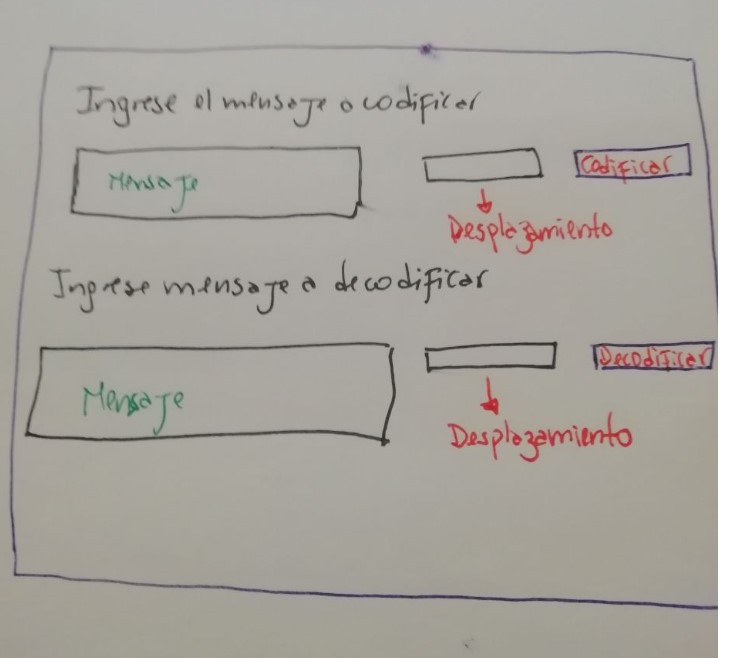 Ingrese el mensaje a codificar
Mensaje
Codificar
Desplazamiento
Ingrese mensaje a decodificar
Mensaje
Decodificar
Desplazamiento